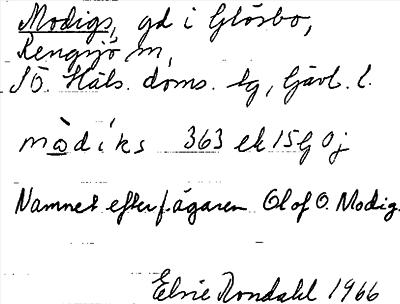 Modigs, gd i Glösbo,
Rengsjö m,
SÖ. Häls. doms. tg, Gävl. l.
mò̱̱díks 363 ek 15G 0j
Namnet efter ägaren Olof O. Modig.
Elvie Rondahl 1966